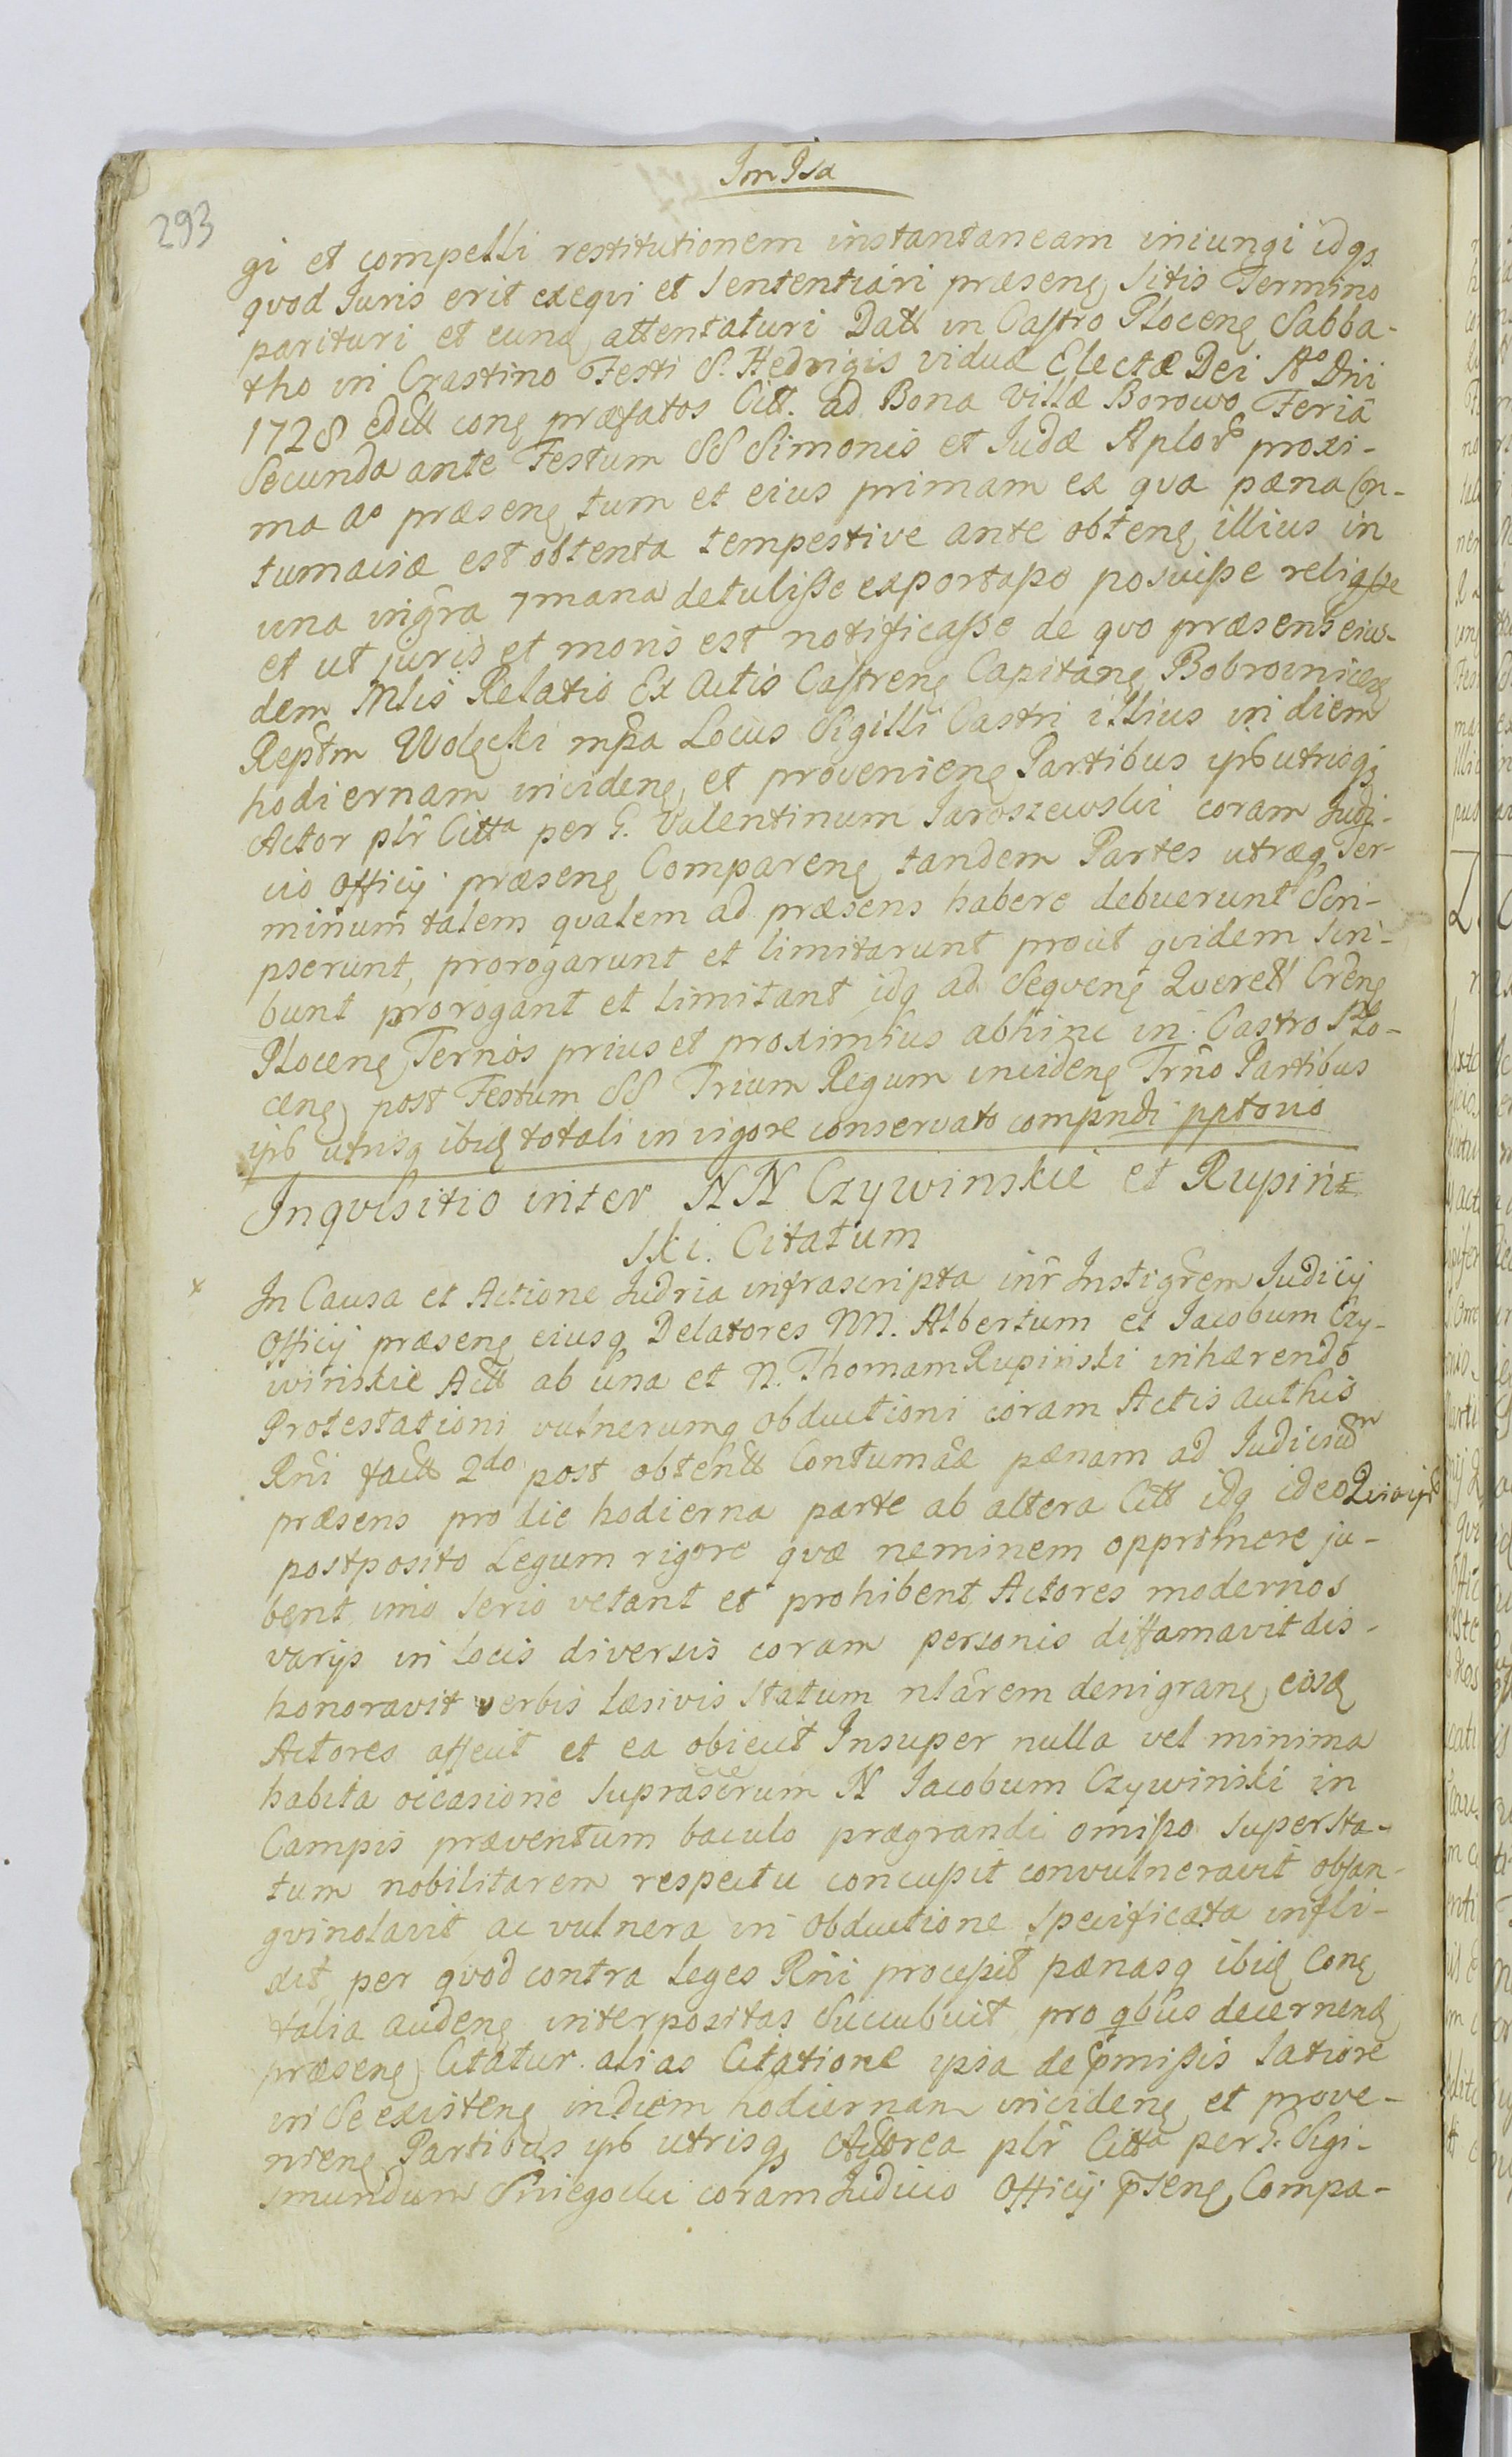 Im Psa
293
gi et compelli restitutionem instantaneam iniungi idqȝ
quod Iuris erit exeqvi et Sententiari præsenę Litis Termino
parituri et eunę attentaturi Datt in Castro Plocenę Sabba-
tho in Crastino Festi S. Hedvigis viduæ Electæ Dei Aº Dni
1728 editt conę præfatos Citt. ad Bona Villæ Borowo Feriâ
Secunda ante Festum SS Simonis et Iudæ Aplor proxi-
ma aº præsenę tum et eius primam ex qva pæna Con-
tumaciæ est obtenta tempestive ante obtenę illius in
una ingra 7mana detulisse exportasse posuisse religsse
et ut juris et moris est notificasse de qvo præsens eius-
dem Mlis Relatio Ex Actis Castrenę Capitanę Bobrovnicenę
Reptm Wolęcki mpa Locus Sigilli Castri illius in diem
hodiernam incidenę et provenienę Partibus ipsb utrisqȝ
Actor plr Citta per G. Valentinum Jaroszewski coram Judi-
cio Officij præsenę Comparenę tandem Partes utræq Ter-
minum talem qualem ad præsens habere debuerunt Scri-
pserunt, prorogarunt et limitarunt prout qvidem Scri-
bunt prorogant et limitant idq ad Seqvenę Querell Crenę
Plocenę Ternos prius et proximius abhinc in Castro Plo-
cenę post Festum SS Trium Regum incidenę Trno Partibus
ipsb utrisq ibię totali in vigore conservato compndi pptorio
Inqvisitio inter NN Czywinskie et Rupin
ski. Citatum
x In Causa et Actione Iudria infrascripta inr Instigrem Iudicij
Officij præsenę eiusq Delatores NN. Albertum et Iacobum Czy-
winskie Actt ab una et N. Thomam Rupinski inhærendo
Protestationi vulnerumq obductioni coram Actis authis
Rni factt 2do post obtentt Contumâæ pænam ad Iudicium
præsens pro die hodierna parte ab altera Citt idq ideo Quia ips
postposito Legum rigore qvæ neminem opprimere ju-
bent imo serio vetant et prohibent Actores modernos
varijs in locis diversis coram personis diffamavit dis-
honoravit verbis læsivis statum nlarem denigranę eosę
Actores affecit et ea obiecit Insuper nulla vel minima
habita occasione suprascrum N Iacobum Czywinski in
Campis præventum baculo prægrandi omisso super Sta-
tum nobilitarem respectu concussit convulneravit obsan-
gvinolavit ac vulnera in Obductione specificata infli-
xit, per qvod contra leges Rni processit pænasq ibię conę
talia audenę interpositas Succubuit pro qbus decernenę
præsenę Citatur. alias Citatione ipsa de pmissis latiore
in Se existenę in diem hodiernam incidenę et prove-
nienę Partibus ipsb utrisqȝ Actorea plr Citta per G. Sigi-
smundum Sniegocki coram Iudicio Officij psenę Compa-